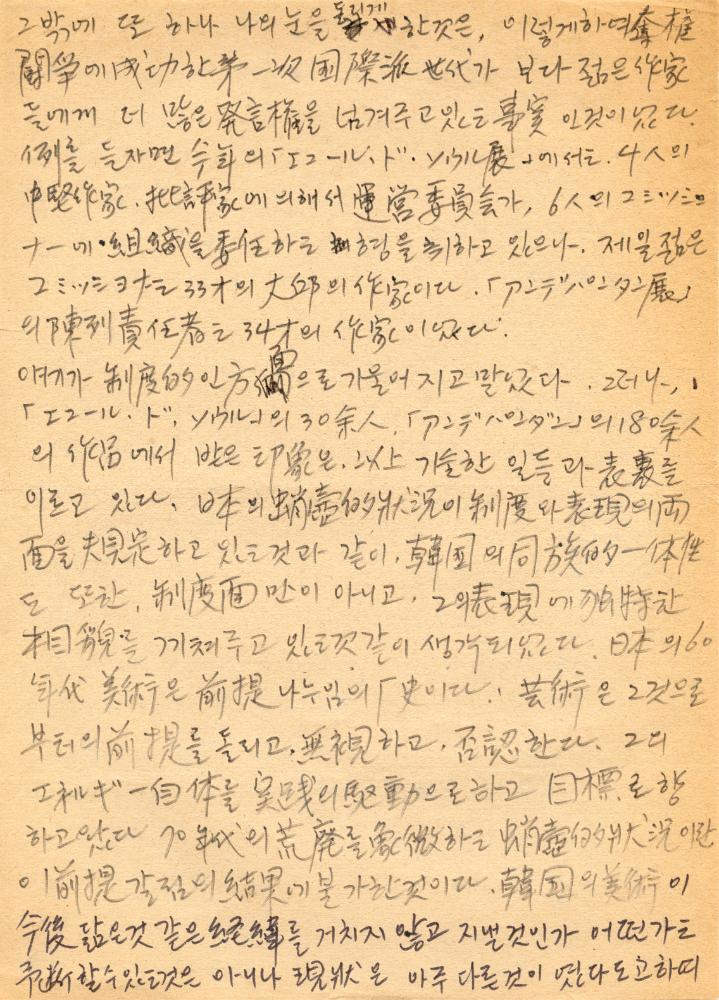 그밖에 또 하나 나의 눈을 돌리게 한것은, 이렇게하여 奪権
闘爭에 成功한 第一次 国際派 世代가 보다 젊은 作家
들에게 더 많은 発言権을 넘겨주고 있는 事実 인것이었다.
例를 들자면 今年의 「エコール、ド、ソウル展」에서는. 4人의
中堅作家、批評家에 의해서 運営委員会가, 6人의 コミッショ
ナー에 組織을 委任하는 형을 취하고 있으나. 제일 젊은
コミッショナ는 33才의 大邱의 作家이다. 「アンデパンダン展」
의 陳列責任者는 34才의 作家이었다.
얘기가 制度的인 方面으로 기울어 지고 말았다. 그러나,
「エコール、ド、ソウル」의 30余人. 「アンデパンダン」의 180余人
의 作品에서 받은 印象은. 以上 기술한 일들과 表裏를
이르고 있다. 日本의 蛸壺的 狀況이 制度와 表現의 両
面을 規定하고 있는것과 같이. 韓国의 同族的 一体性
도 또한, 制度面만이 아니고. 그의 表現에 独特한
相貌를 끼쳐주고 있는것 같이 생각되었다. 日本의 60
年代 美術은 前提 나누임의 「史이다. 芸術은 그것으로
부터의 前提를 돌리고. 無視하고. 否認한다. 그의
エネルギー自体를 実践의 駆動으로하고 目標로 향
하고있다 70年代의 荒廃를 象徴하는 蛸壺的 狀況이란
이 前提 갈림의 結果에 불가한것이다. 韓国의 美術이
今後 닮은것 같은 経緯를 거치지 않고 지낼것인가 어떤가는
予断할수있는것은 아니나 現狀은 아주 다른것이 였다도고하며